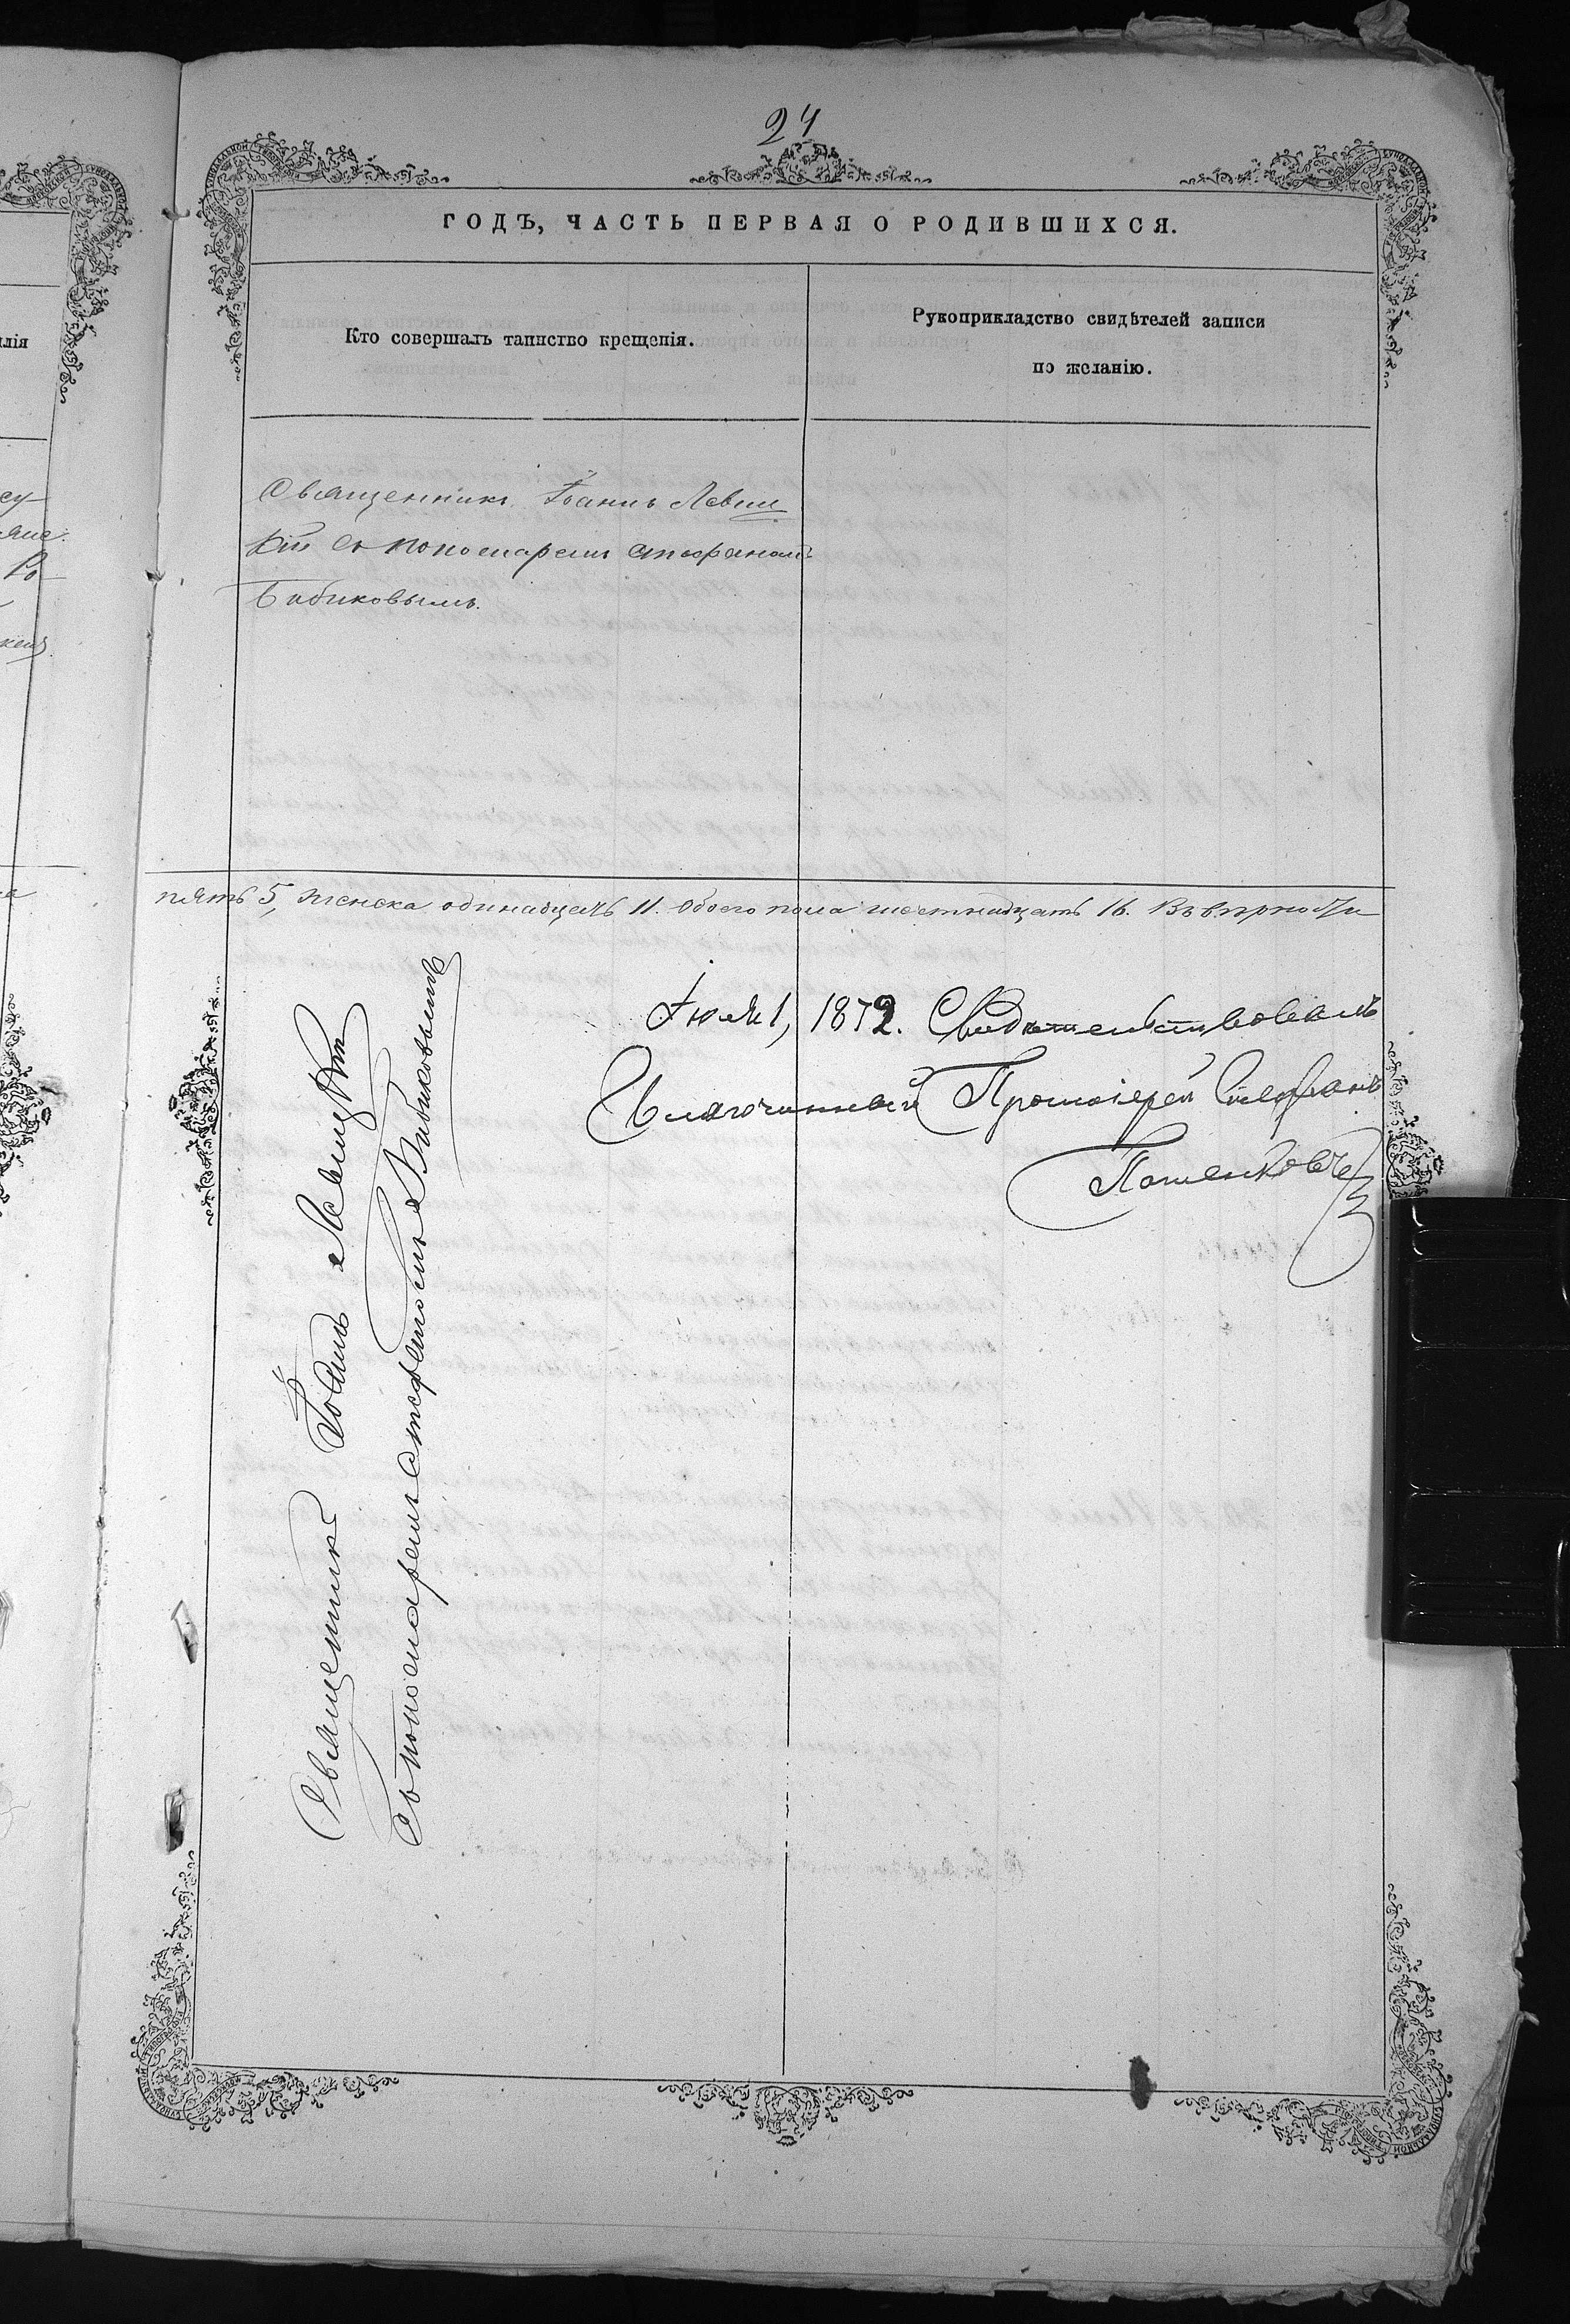 24
ГОДЪ, ЧАСТЬ ПЕРВАЯ О РОДИВШИХСЯ.
Кто совершалъ таинство крещенія.
Рукоприкладство свидѣтелей записи
по желанію.
Священникъ Іоаннъ Левиц
кій съ пономаремъ Стефаномъ
Бибиковымъ.
пять 5, женска одинадцать 11. Обоего пола шестнадцать 16. Въ вѣрности
Іюля 1, 1872. Свидѣтельствовалъ
Благочинный Протоіерей Стефанъ
Священникъ Іоаннъ Левицкій
съ пономаремъ Стефаномъ Бибиковымъ